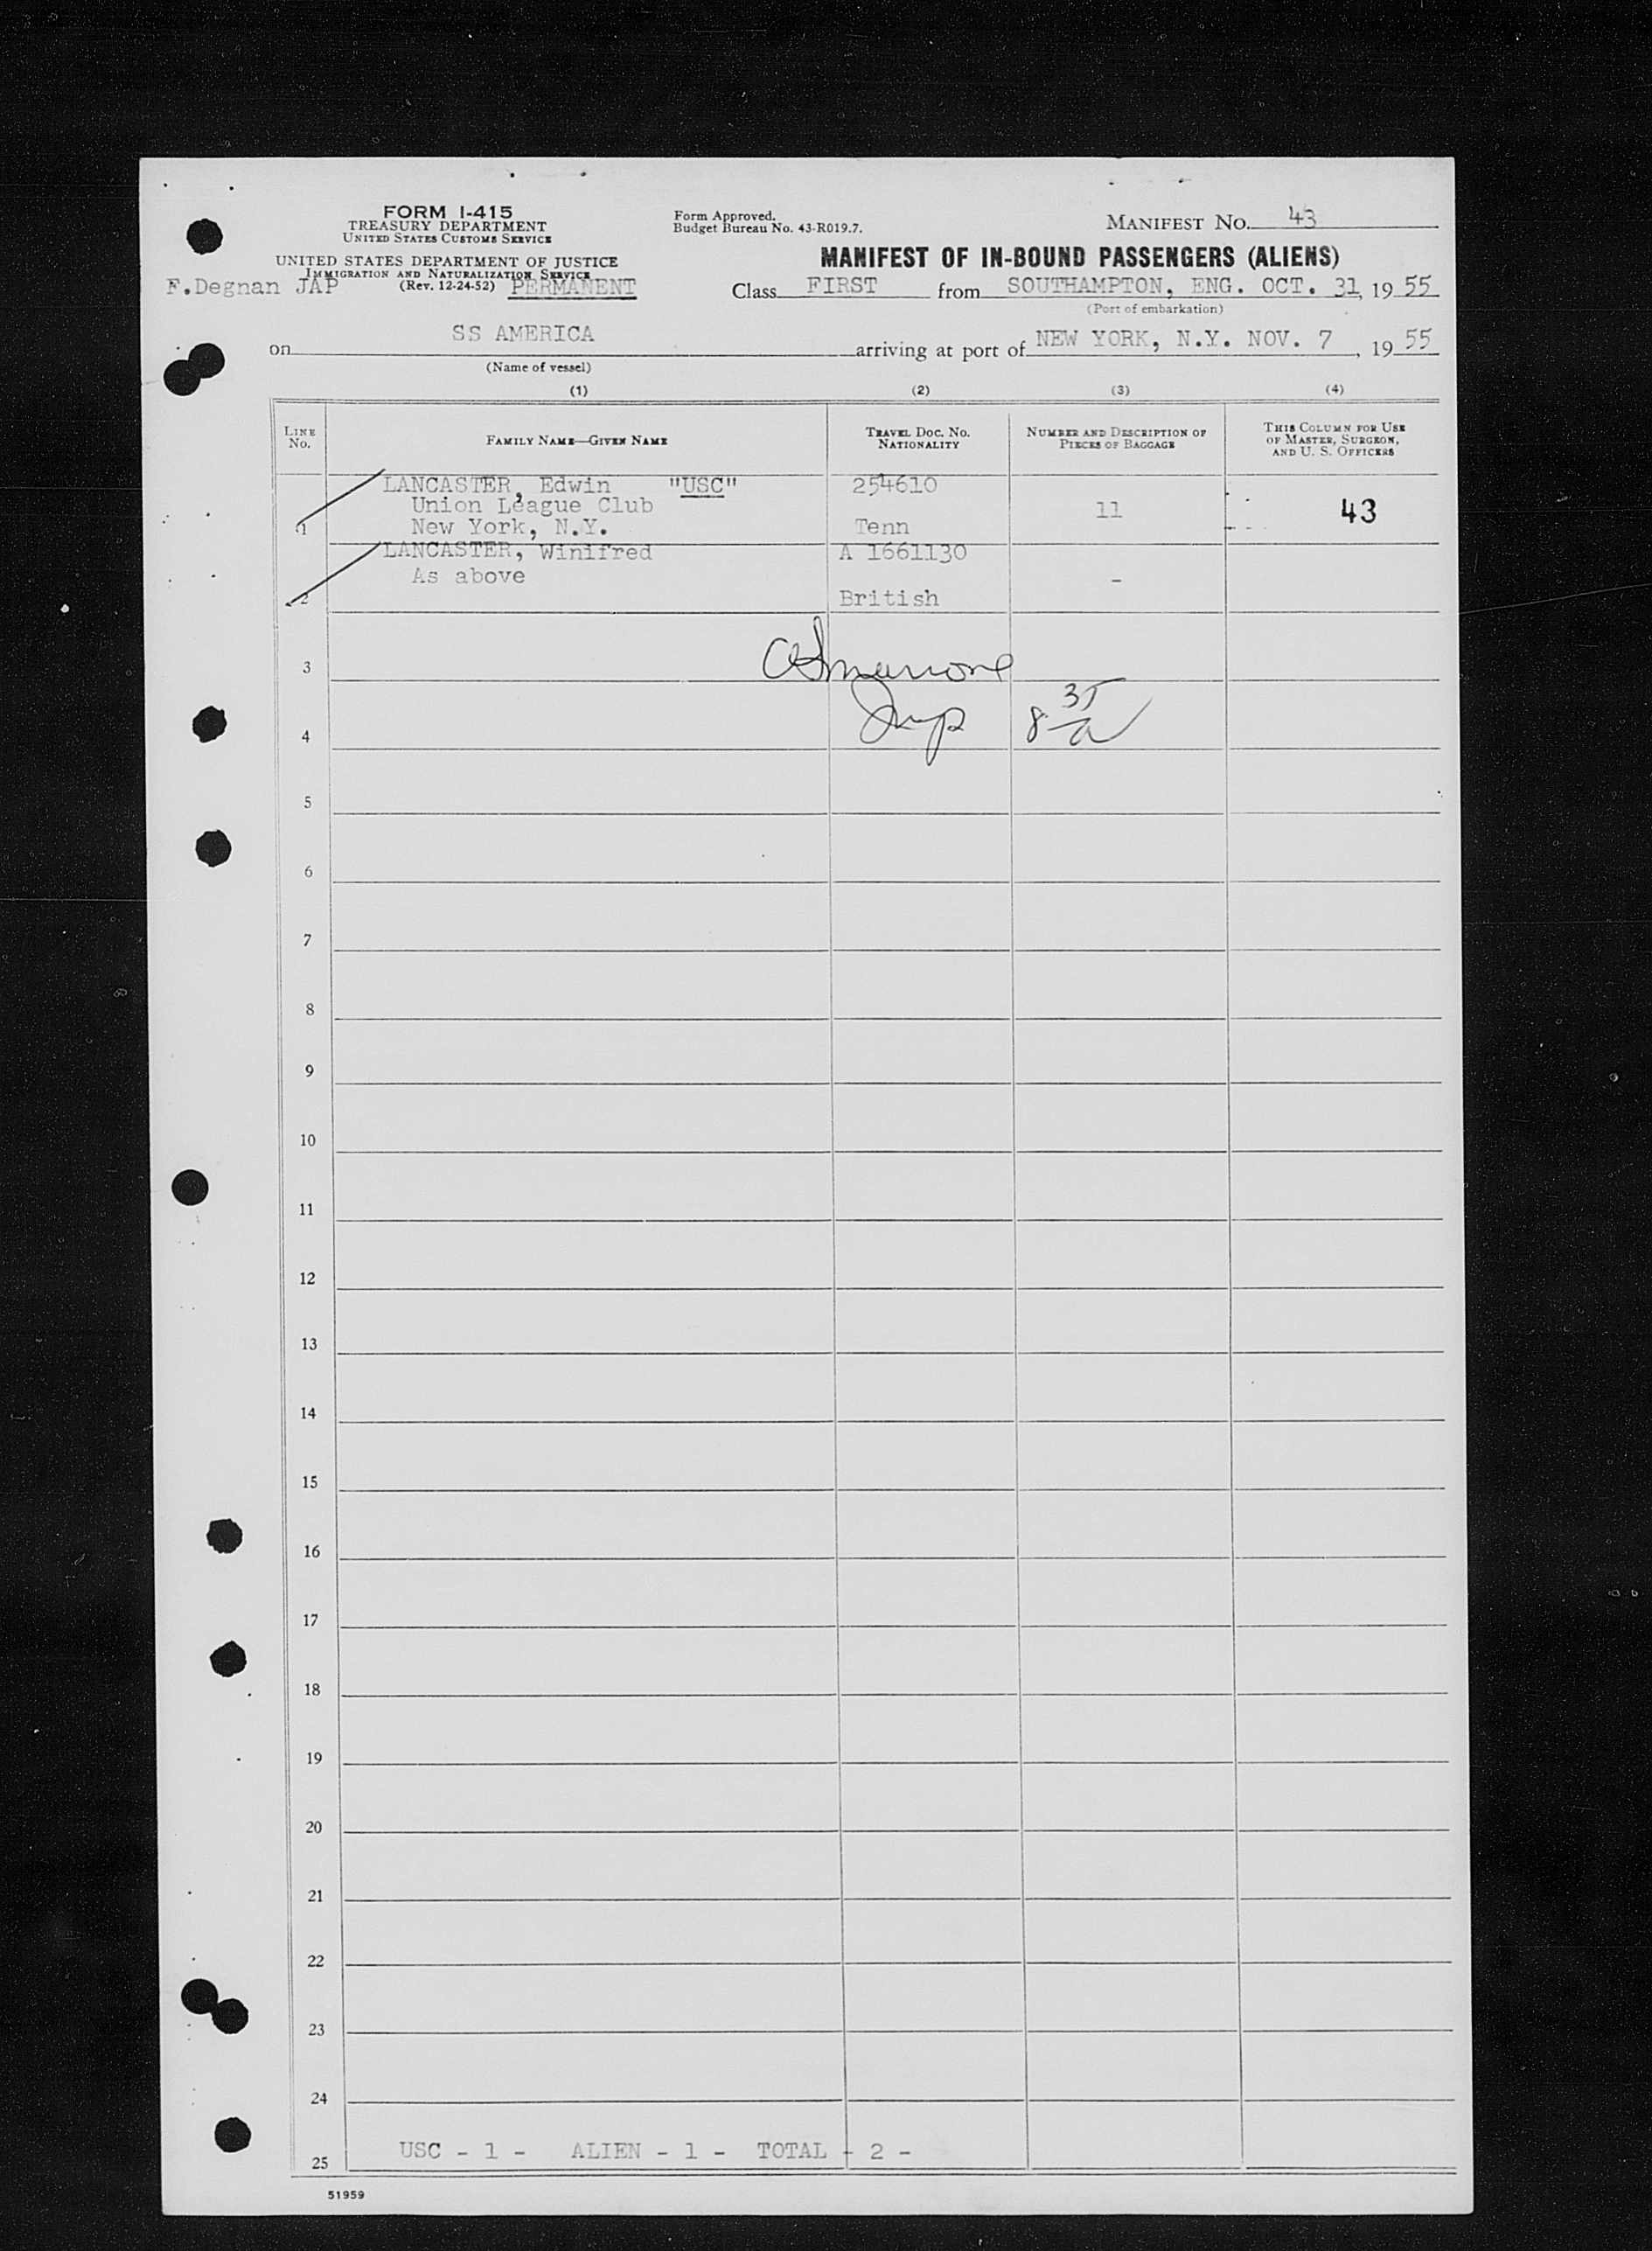 FORM I-415
TREASURY DEPARTMENT
UNITED STATES CUSTOMS SERVICE
UNITED STATES DEPARTMENT OF JUSTICE
IMMIGRATION AND NATURALIZATION SERVICE
(Rev. 12-24-52) PERMANENT
F.Degnan JAP
Form Approved.
Budget Bureau No. 43-R019.7.
MANIFEST NO. 43
MANIFEST OF IN-BOUND PASSENGERS (ALIENS)
Class FIRST from SOUTHAMPTON, ENG. OCT. 31, 19 55
(Port of embarkation)
on SS AMERICA arriving at port of NEW YORK, N.Y. NOV. 7, 19 55
(Name of vessel)
(1) (2) (3) (4)
LINE NO. FAMILY NAME—GIVEN NAME TRAVEL DOC. NO. NATIONALITY NUMBER AND DESCRIPTION OF PIECES OF BAGGAGE THIS COLUMN FOR USE OF MASTER, SURGEON, AND U. S. OFFICERS
LANCASTER, Edwin "USC" 254610
Union League Club 11 43
1 New York, N.Y. Tenn
LANCASTER, Winifred A 1661130
As above -
2 British
3
4 Insp 8 35/a
5
6
7
8
9
10
11
12
13
14
15
16
17
18
19
20
21
22
23
24
25 USC - 1 - ALIEN - 1 - TOTAL - 2 -
51959